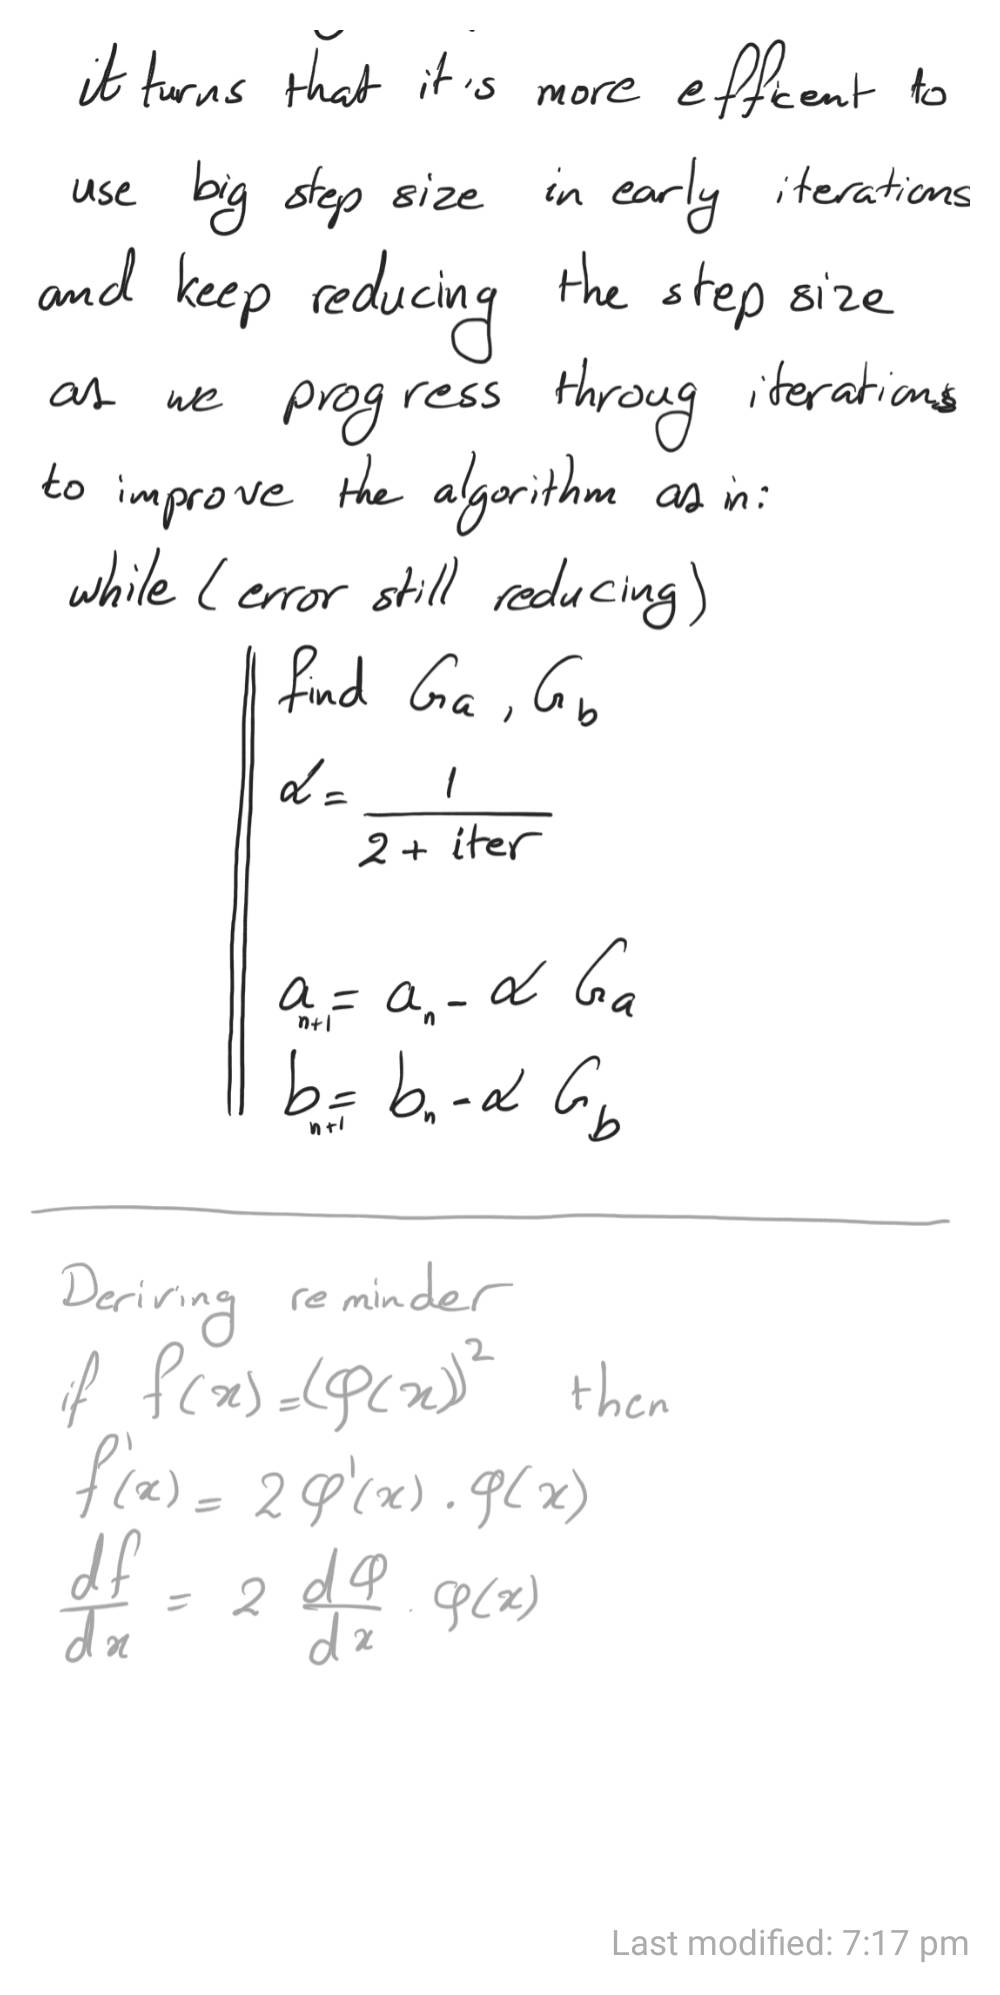 it turns that it's more efficent to
use big step size in early iterations
and keep reducing the step size
as we progress throug iterations
to improve the algorithm as in:
while (error still reducing)
find Ga, Gb
α = 1 / (2 + iter)
a_{n+1} = a_n - α Ga
b_{n+1} = b_n - α Gb
Deriving reminder
if f(x) = (φ(x))² then
f'(x) = 2 φ'(x) . φ(x)
df/dx = 2 dφ/dx . φ(x)
Last modified: 7:17 pm